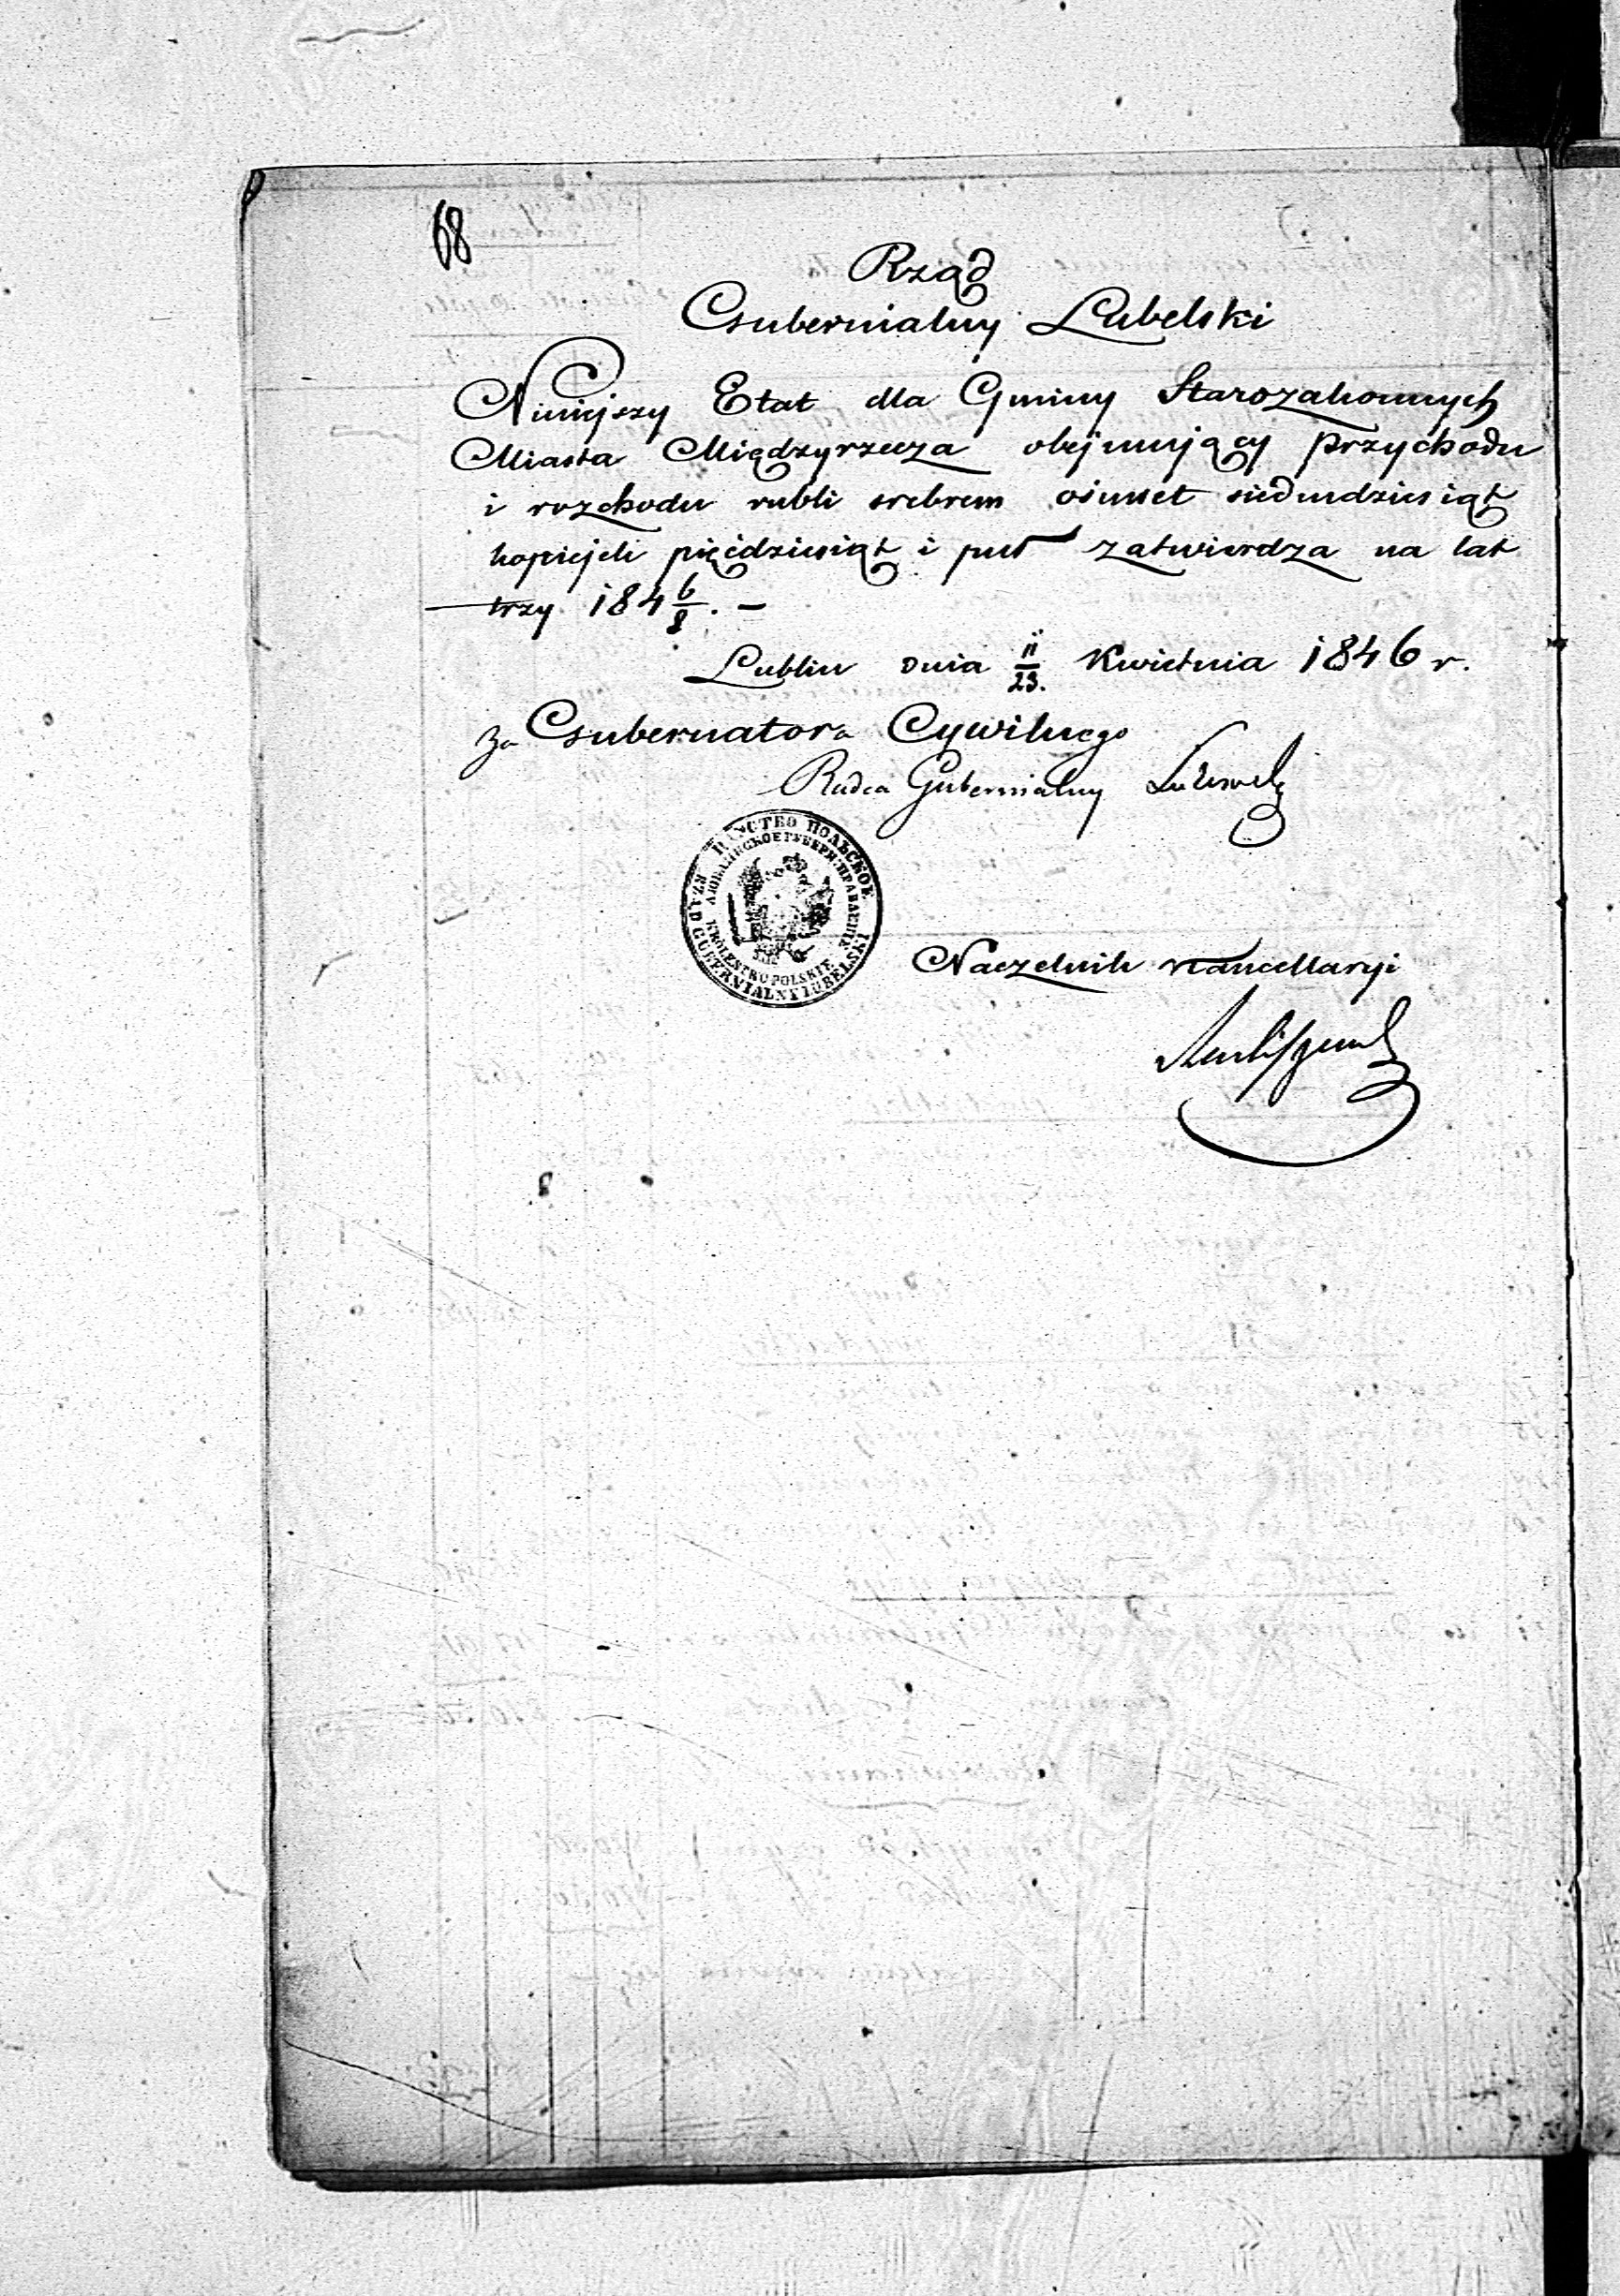 68
Rząd
Gubernialny Lubelski
Niniejszy Etat dla Gminy Starozakonnych
Miasta Międzyrzecza obejmujący przychodu
i rozchodu rubli srebrem ośmset siedmdziesiąt
kopiejek pięćdziesiąt i puł zatwierdza na lat
trzy 184 6/8. –
Lublin dnia 11/23. Kwietnia 1846 r.
Za Gubernatora Cywilnego
Radca Gubernialny
ЦАРСТВО ПОЛЬСКОЕ
ЛЮБЛИНСКОЕ ГУБЕРН: ПРАВЛЕНИЕ
KRÓLESTWO POLSKIE
RZĄD GUBERNIALNY LUBELSKI
Naczelnik Kancellaryi